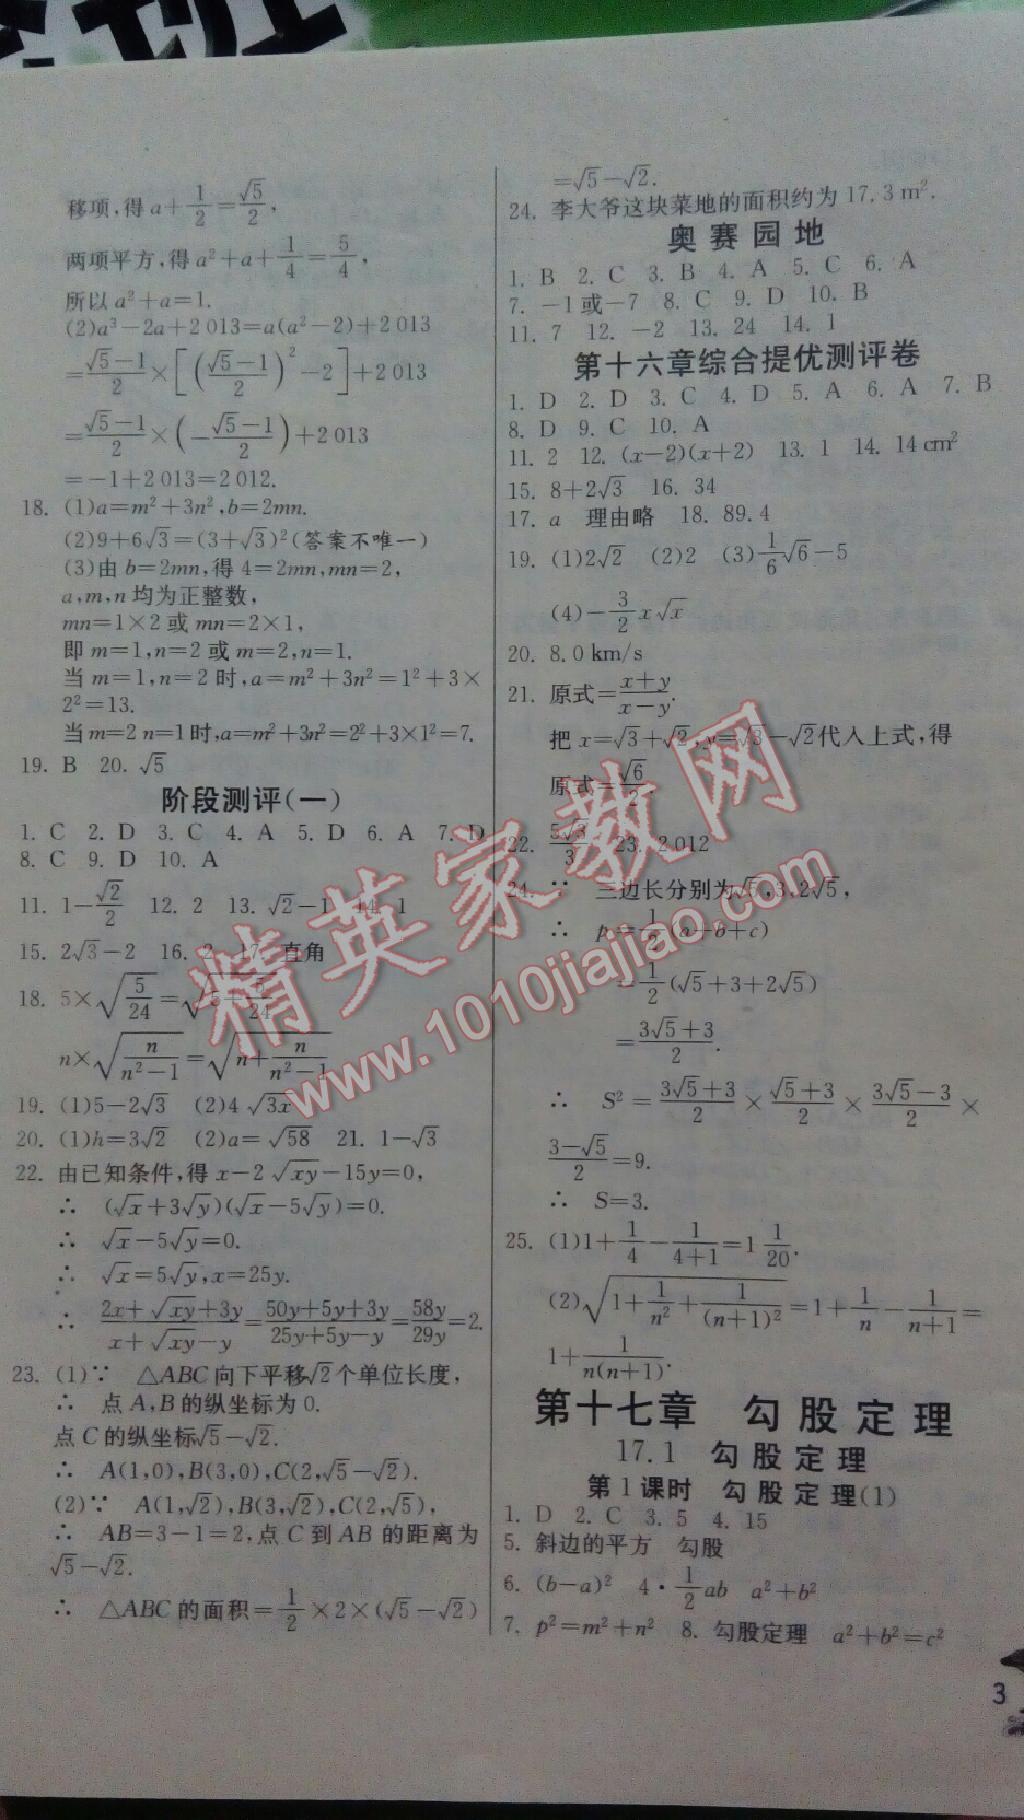 班
移项,得a+1/2=√5/2,
两项平方,得a²+a+1/4=5/4,
所以a²+a=1.
(2)a³-2a+2 013=a(a²-2)+2 013
=(√5-1)/2×[((√5-1)/2)²-2]+2 013
=(√5-1)/2×(-(√5-1)/2)+2 013
=-1+2 013=2 012.
18. (1)a=m²+3n²,b=2mn.
(2)9+6√3=(3+√3)²(答案不唯一)
(3)由b=2mn,得4=2mn,mn=2,
a,m,n均为正整数,
mn=1×2或mn=2×1,
即m=1,n=2或m=2,n=1.
当m=1,n=2时,a=m²+3n²=1²+3×
2²=13.
当m=2 n=1时,a=m²+3n²=2²+3×1²=7.
19. B 20. √5
阶段测评(一)
1. C 2. D 3. C 4. A 5. D 6. A 7. D
8. C 9. D 10. A
11. 1-√2/2 12. 2 13. √2-1 14. 1
15. 2√3-2 16. 2 17. 直角
18. 5×√(5/24)=√(5+5/24)
n×√(n/(n²-1))=√(n+n/(n²-1))
19. (1)5-2√3 (2)4√3x
20. (1)h=3√2 (2)a=√58 21. 1-√3
22. 由已知条件,得x-2√xy-15y=0,
∴ (√x+3√y)(√x-5√y)=0.
∴ √x-5√y=0.
∴ √x=5√y,x=25y.
∴ (2x+√xy+3y)/(x+√xy-y)=(50y+5y+3y)/(25y+5y-y)=58y/29y=2.
23. (1)∵ △ABC向下平移√2个单位长度,
∴ 点A,B的纵坐标为0.
点C的纵坐标√5-√2.
∴ A(1,0),B(3,0),C(2,√5-√2).
(2)∵ A(1,√2),B(3,√2),C(2,√5),
∴ AB=3-1=2,点C到AB的距离为
√5-√2.
∴ △ABC的面积=1/2×2×(√5-√2)
=√5-√2.
24. 李大爷这块菜地的面积约为17.3 m².
奥赛园地
1. B 2. C 3. B 4. A 5. C 6. A
7. -1或-7 8. C 9. D 10. B
11. 7 12. -2 13. 24 14. 1
第十六章综合提优测评卷
1. D 2. D 3. C 4. D 5. A 6. A 7. B
8. D 9. C 10. A
11. 2 12. (x-2)(x+2) 13. 1 14. 14 cm²
15. 8+2√3 16. 34
17. a 理由略 18. 89.4
19. (1)2√2 (2)2 (3)1/6√6-5
(4)-3/2x√x
20. 8.0 km/s
21. 原式=(x+y)/(x-y).
把x=√3+√2,y=√3-√2代入上式,得
原式=√6/2.
22. 5√3/3 23. 2 012
24. ∵ 三边长分别为√5,3,2√5,
∴ p=1/2(a+b+c)
=1/2(√5+3+2√5)
=(3√5+3)/2.
∴ S²=(3√5+3)/2×(√5+3)/2×(3√5-3)/2×
(3-√5)/2=9.
∴ S=3.
25. (1)1+1/4-1/(4+1)=1 1/20.
(2)√(1+1/n²+1/(n+1)²)=1+1/n-1/(n+1)=
1+1/(n(n+1)).
第十七章 勾股定理
17.1 勾股定理
第1课时 勾股定理(1)
1. D 2. C 3. 5 4. 15
5. 斜边的平方 勾股
6. (b-a)² 4·1/2ab a²+b²
7. p²=m²+n² 8. 勾股定理 a²+b²=c²
3
精英家教网
www.1010jiajiao.com